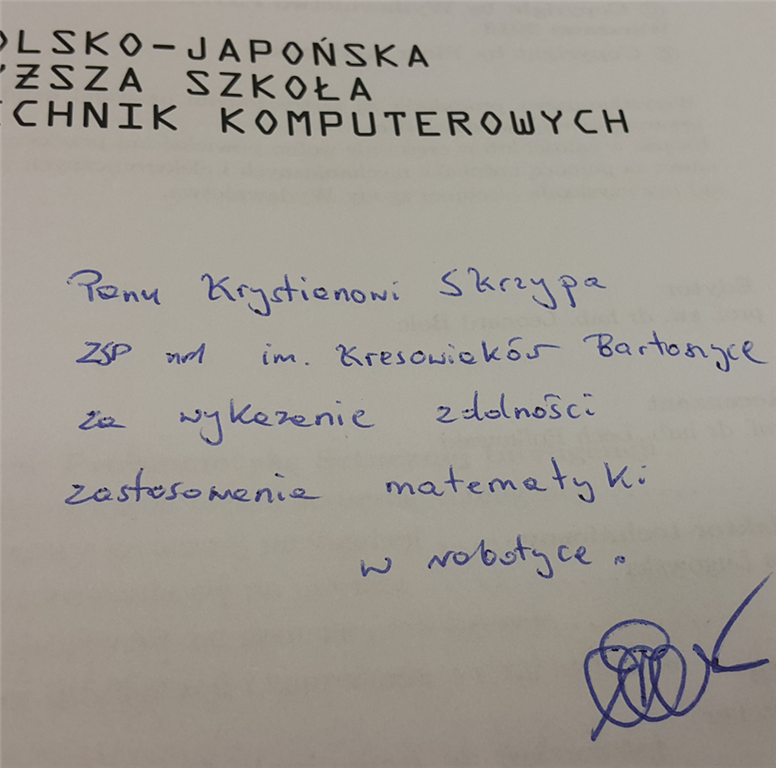 OLSKO-JAPOŃSKA
YŻSZA SZKOŁA
ECHNIK KOMPUTEROWYCH
Panu Krystianowi Skrzypa
ZSP nr1 im. Kresowiaków Bartoszyce
za wykazanie zdolności
zastosowania matematyki
w robotyce.